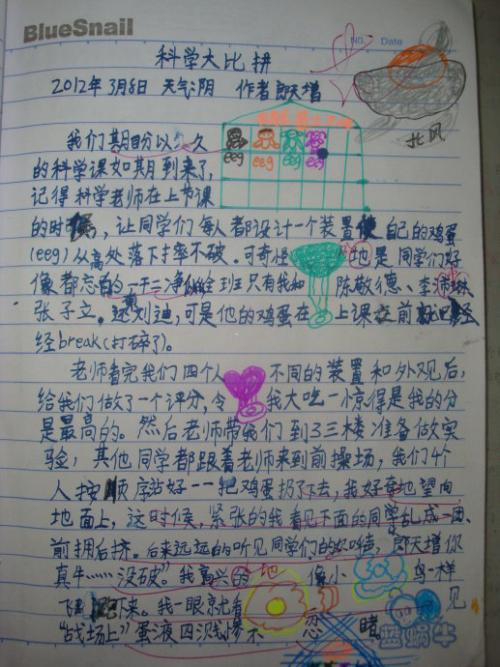 BlueSnail
NO.
Date
科学大比拼
2012年3月8日 天气:阴 作者 郎天增
北风
我们期盼以久
eeg eeg eeg eeg
的科学课如期到来了,
记得科学老师在上节课
的时,让同学们每人都设计一个装置使自己的鸡蛋
(eeg)从高处落下摔不破。可奇怪地是同学们好
像都忘的一干二净似的全班只有我和陈敬德、李
张子立。还刘迪,可是他的鸡蛋在上课之前就已经
经break(打碎了)。
老师看完我们四个人不同的装置和外观后,
给我们做了一个评分,令我大吃一惊得是我的分
是最高的。然后老师带我们到3三楼准备做实
验,其他同学都跟着老师来到前操场,我们4个
人按顺序站好一一把鸡蛋扔了下去,我好奇地望向
地面上,这时候,紧张的我看见下面的同学乱成一团、
前拥后挤。后来远远的听见同学们的吹嘘声,郎天增你
真牛……没破”。我高兴的地像小鸟一样
飞下来。我一眼就看见
“战场上”蛋液四溅惨不忍睹。
蓝蜗牛